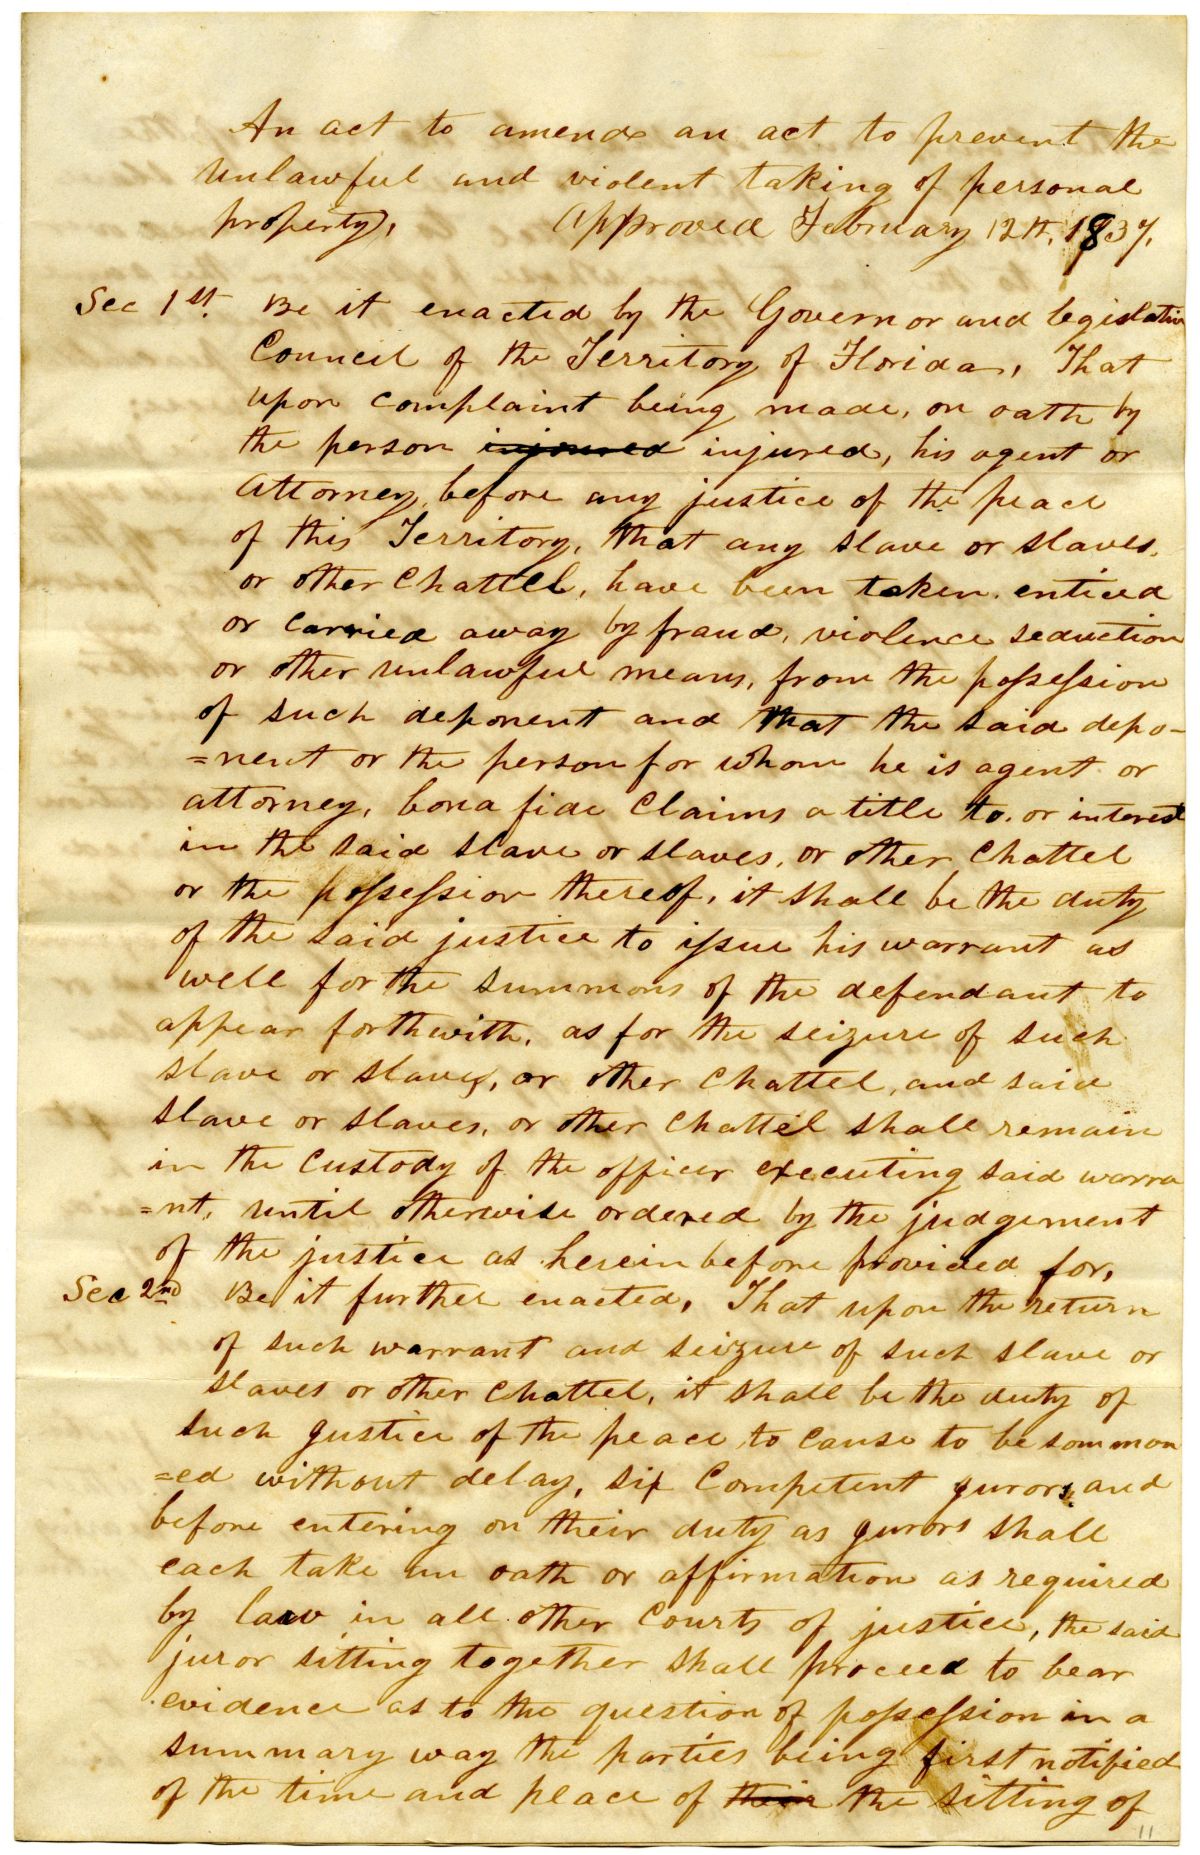 An act to amend an act to prevent the
unlawful and violent taking of personal
property, Approved February 12th, 1837.
Sec 1st. Be it enacted by the Governor and legislative
Council of the Territory of Florida, That
upon complaint being made, on oath by
the person injoured injured, his agent or
Attorney, before any justice of the peace
of this Territory, that any slave or slaves,
or other Chattel, have been taken, enticed
or carried away by fraud, violence seduction
or other unlawful means, from the possession
of such deponent and that the said depo-
=nent or the person for whom he is agent or
attorney, bona fide Claims a title to, or interest
in the said slave or slaves, or other Chattel
or the possession thereof, it shall be the duty
of the said justice to issue his warrant as
well for the summons of the defendant to
appear forthwith, as for the seizure of such
slave or slaves, or other Chattel, and said
slave or slaves, or other Chattel shall remain
in the Custody of the officer executing said warra
=nt, until otherwise ordered by the judgement
of the justice as herein before provided for,
Sec 2nd Be it further enacted, That upon the return
of such warrant and seizure of such slave or
slaves or other Chattel, it shall be the duty of
such justice of the peace, to cause to be sommon
=ed without delay, six Competent jurors, and
before entering on their duty as jurors shall
each take an oath or affirmation as required
by law in all other Courts of justice, the said
juror sitting together shall proceed to bear
evidence as to the question of possession in a
summary way the parties being first notified
of the time and place of their the sitting of
11